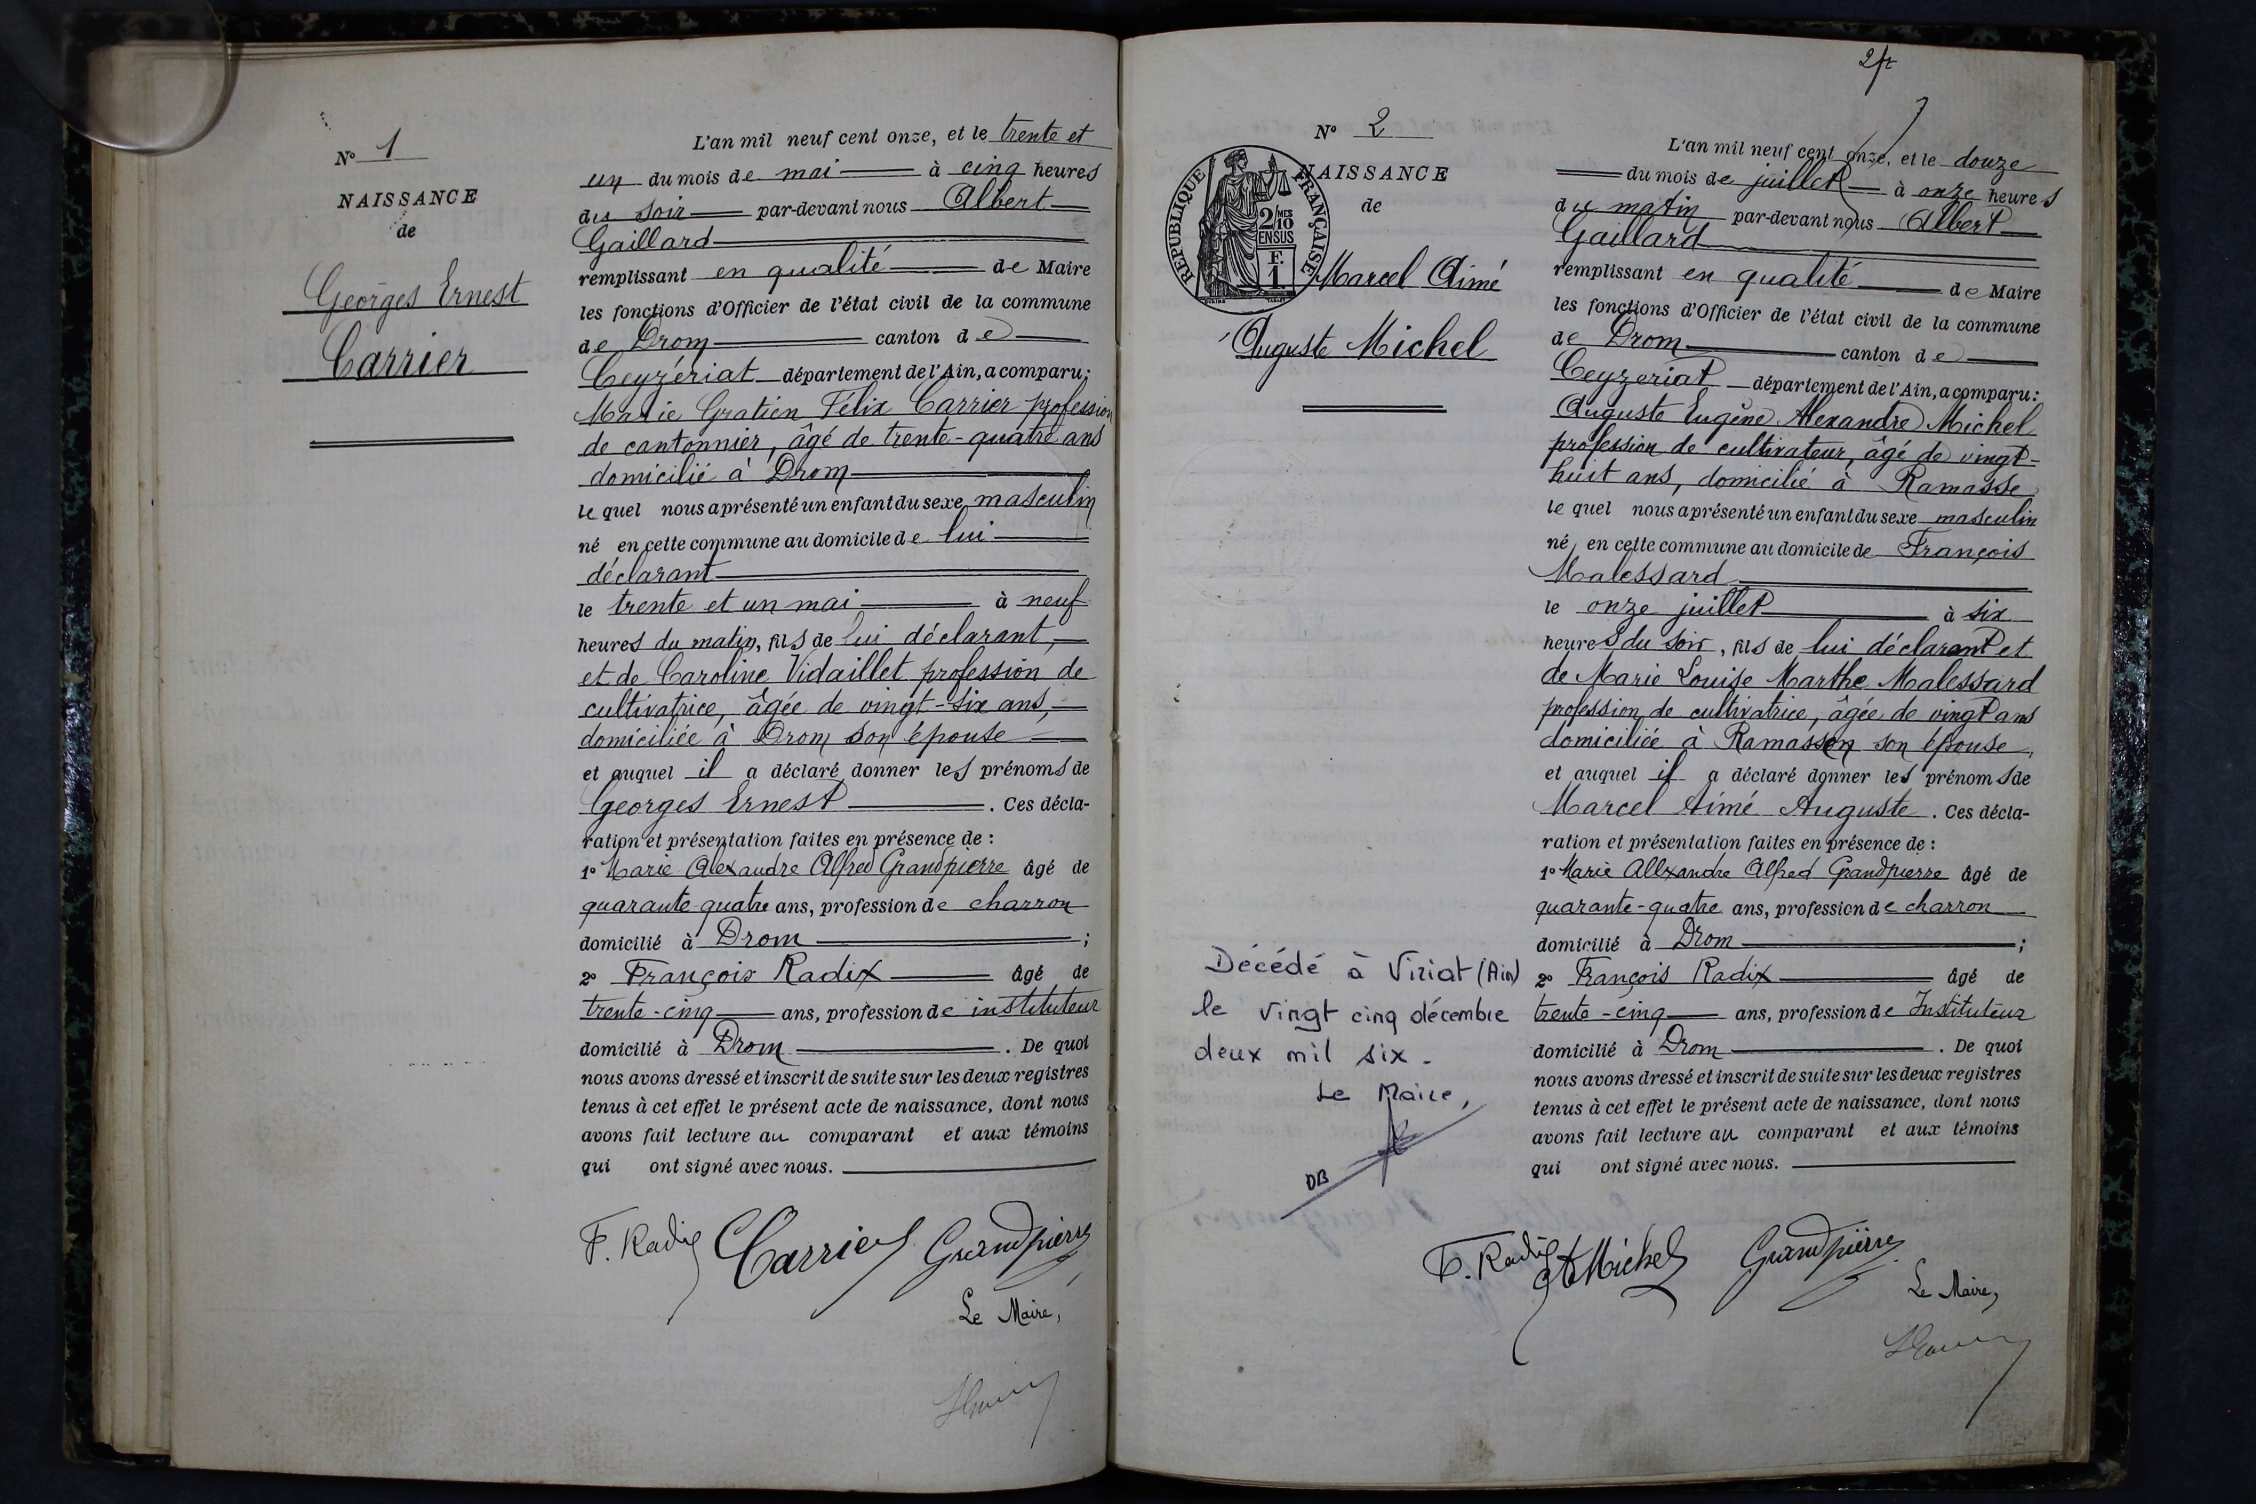 N° 1
NAISSANCE
de
Georges Ernest
Carrier
L'an mil neuf cent onze, et le trente et
un du mois de mai à cinq heures
du soir par-devant nous Albert
Gaillard
remplissant en qualité de Maire
les fonctions d'Officier de l'état civil de la commune
de Drom canton de
Ceyzériat département de l'Ain, a comparu:
Marie Gratien Félix Carrier profession
de cantonnier, âgé de trente-quatre ans
domicilié à Drom
le quel nous a présenté un enfant du sexe masculin
né en cette commune au domicile de lui
déclarant
le trente et un mai à neuf
heures du matin, fils de lui déclarant,
et de Caroline Vidaillet profession de
cultivatrice, âgée de vingt-six ans,
domiciliée à Drom son épouse
et auquel il a déclaré donner les prénoms de
Georges Ernest. Ces décla-
ration et présentation faites en présence de :
1° Marie Alexandre Alfred Grandpierre âgé de
quarante-quatre ans, profession de charron
domicilié à Drom ;
2° François Radix âgé de
trente-cinq ans, profession de instituteur
domicilié à Drom. De quoi
nous avons dressé et inscrit de suite sur les deux registres
tenus à cet effet le présent acte de naissance, dont nous
avons fait lecture au comparant et aux témoins
qui ont signé avec nous.
F. Radix Carrier Grandpierre
Le Maire,
2
N° 2
NAISSANCE
de
RÉPUBLIQUE FRANÇAISE
2/10 MES
EN SUS
F.
1
Marcel Aimé
Auguste Michel
L'an mil neuf cent onze, et le douze
du mois de juillet à onze heures
du matin par-devant nous Albert
Gaillard
remplissant en qualité de Maire
les fonctions d'Officier de l'état civil de la commune
de Drom canton de
Ceyzeriat département de l'Ain, a comparu:
Auguste Eugène Alexandre Michel
profession de cultivateur, âgé de vingt-
huit ans, domicilié à Ramasse
le quel nous a présenté un enfant du sexe masculin
né en cette commune au domicile de François
Malessard
le onze juillet à six
heures du soir, fils de lui déclarant et
de Marie Louise Marthe Malessard
profession de cultivatrice, âgée de vingt ans
domiciliée à Ramasse son épouse,
et auquel il a déclaré donner les prénoms de
Marcel Aimé Auguste. Ces décla-
ration et présentation faites en présence de :
1° Marie Alexandre Alfred Grandpierre âgé de
quarante-quatre ans, profession de charron
domicilié à Drom ;
2° François Radix âgé de
trente-cinq ans, profession de Instituteur
domicilié à Drom. De quoi
nous avons dressé et inscrit de suite sur les deux registres
tenus à cet effet le présent acte de naissance, dont nous
avons fait lecture au comparant et aux témoins
qui ont signé avec nous.
Décédé à Viriat (Ain)
le vingt cinq décembre
deux mil six.
Le Maire,
DB
F. Radix A Michel Grandpierre
Le Maire,